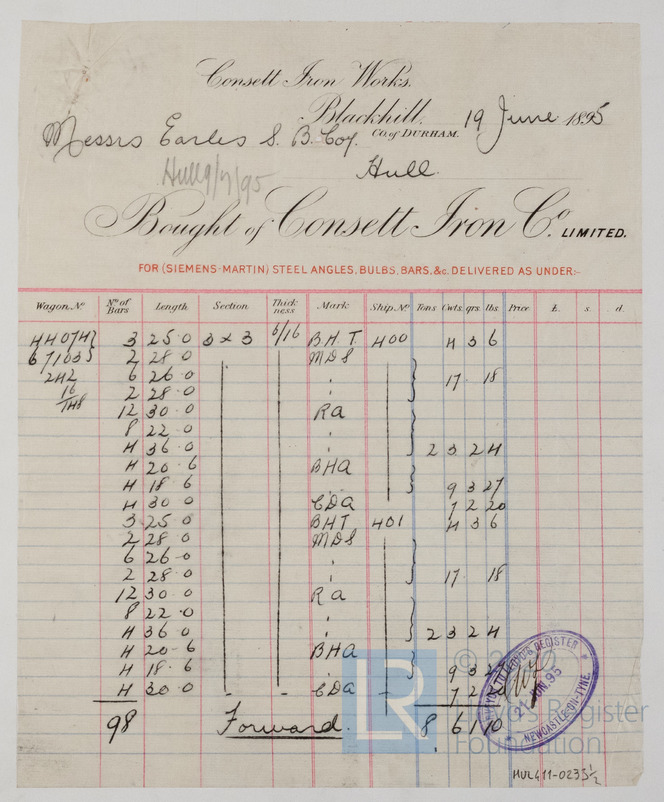 Consett Iron Works,
Blackhill,
Co. of DURHAM. 19 June 1895
Messrs Earles S. B. Coy.
Hull.
Hull 9/7/95
Bought of Consett Iron Co. LIMITED.
FOR (SIEMENS-MARTIN) STEEL ANGLES, BULBS, BARS, &c. DELIVERED AS UNDER:-
Wagon. No. No. of Bars Length Section Thickness Mark Ship. No. Tons Cwts. qrs. lbs. Price £. s. d.
3 25.0 3 x 3 6/16 B.H.T. 400 4 3 6
2 28.0 MDS
242 6 26.0 " 17 18
16 2 28.0 "
148 12 30.0 RA
8 22.0 "
4 36.0 " 2 3 2 4
4 20.6 BHA
4 18.6 " 9 3 27
4 30.0 CDA 7 2 20
3 25.0 BHT 401 4 3 6
2 28.0 MDS
6 26.0 "
2 28.0 " 17 18
12 30.0 RA
8 22.0 "
4 36.0 " 2 3 2 4
4 20.6 BHA
4 18.6 " 9 3
4 30.0 CDA 7 2
98 Forward. 8 6 1 10
LLOYD'S REGISTER
21 JUN. 95
NEWCASTLE-ON-TYNE
LR
Lloyd's Register
Foundation
HUL411-0235½